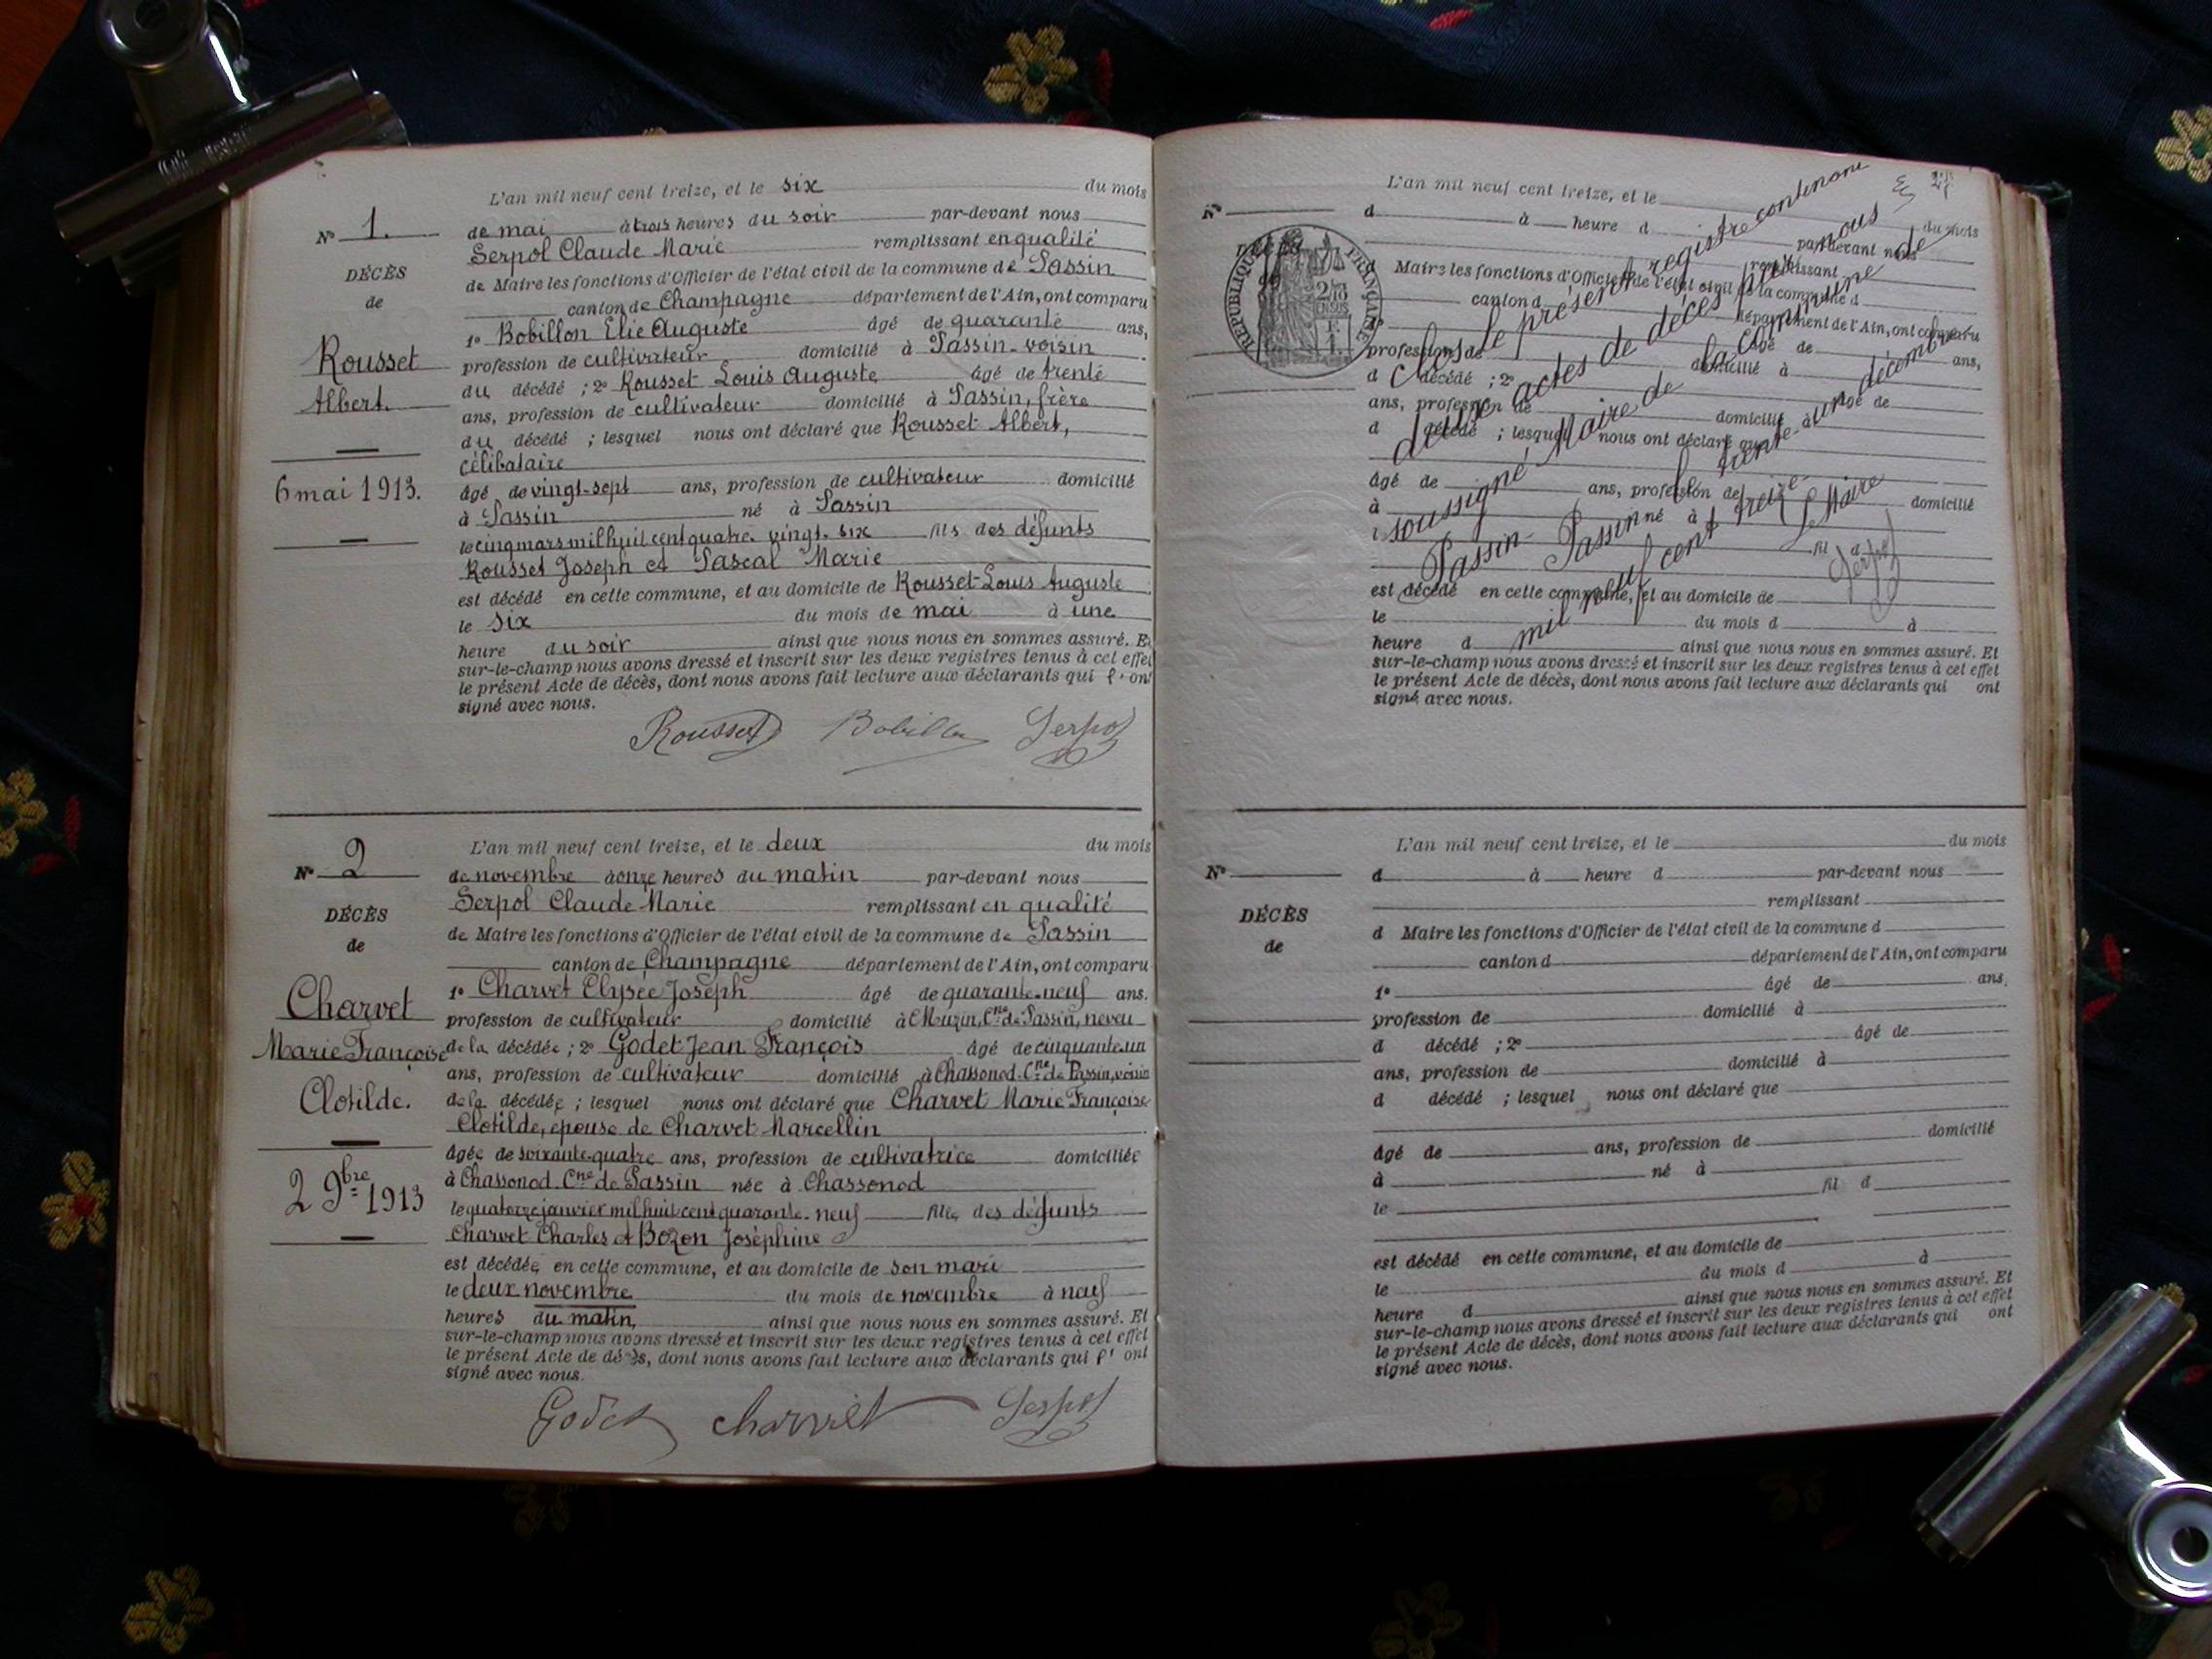 L'an mil neuf cent treize, et le six du mois
N° 1. de mai à trois heures du soir par-devant nous
Serpol Claude Marie remplissant en qualité
DÉCÈS de Maire les fonctions d'Officier de l'état civil de la commune de Passin
de canton de Champagne département de l'Ain, ont comparu
1° Bobillon Elie Auguste âgé de quarante ans,
Rousset profession de cultivateur domicilié à Passin-voisin
du décédé ; 2° Rousset Louis Auguste âgé de trente
Albert. ans, profession de cultivateur domicilié à Passin, frère
du décédé ; lesquel nous ont déclaré que Rousset Albert,
célibataire
6 mai 1913. âgé de vingt-sept ans, profession de cultivateur domicilié
à Passin né à Passin
le cinq mars mil huit cent quatre-vingt-six fils des défunts
Rousset Joseph et Pascal Marie
est décédé en cette commune, et au domicile de Rousset Louis Auguste
le six du mois de mai à une
heure du soir ainsi que nous nous en sommes assuré. Et
sur-le-champ nous avons dressé et inscrit sur les deux registres tenus à cet effet
le présent Acte de décès, dont nous avons fait lecture aux déclarants qui l'ont
signé avec nous.
Rousset Bobillon Serpol
L'an mil neuf cent treize, et le deux du mois
N° 2 de novembre à onze heures du matin par-devant nous
Serpol Claude Marie remplissant en qualité
DÉCÈS de Maire les fonctions d'Officier de l'état civil de la commune de Passin
de canton de Champagne département de l'Ain, ont comparu
1° Charvet Elysée Joseph âgé de quarante-neuf ans.
Charvet profession de cultivateur domicilié à Muzin, Cne de Passin, neveu
Marie Françoise de la décédée ; 2° Godet Jean François âgé de cinquante un
ans, profession de cultivateur domicilié à Chassonod Cne de Passin, voisin
Clotilde. de la décédée ; lesquel nous ont déclaré que Charvet Marie Françoise
Clotilde, épouse de Charvet Marcellin
âgée de soixante-quatre ans, profession de cultivatrice domiciliée
2 9bre 1913 à Chassonod Cne de Passin née à Chassonod
le quatorze janvier mil huit cent quarante-neuf fille des défunts
Charvet Charles et Bozon Joséphine
est décédée en cette commune, et au domicile de son mari
le deux novembre du mois de novembre à neuf
heures du matin, ainsi que nous nous en sommes assuré. Et
sur-le-champ nous avons dressé et inscrit sur les deux registres tenus à cet effet
le présent Acte de décès, dont nous avons fait lecture aux déclarants qui l'ont
signé avec nous.
Godet Charvet Serpol
L'an mil neuf cent treize, et le du mois
N° d à heure d par-devant nous
remplissant
DÉCÈS d Maire les fonctions d'Officier de l'état civil de la commune d
canton d département de l'Ain, ont comparu
RÉPUBLIQUE FRANÇAISE
1° âgé de ans,
profession de domicilié à
d décédé ; 2° âgé de
ans, profession de domicilié à
d décédé ; lesquel nous ont déclaré que
âgé de ans, profession de domicilié
à né à
le fil d
est décédé en cette commune, et au domicile de
le du mois d à
heure d ainsi que nous nous en sommes assuré. Et
sur-le-champ nous avons dressé et inscrit sur les deux registres tenus à cet effet
le présent Acte de décès, dont nous avons fait lecture aux déclarants qui ont
signé avec nous.
Clos le présent registre contenant
deux actes de décès par nous
soussigné Maire de la commune de
Passin
Passin le trente-un décembre
mil neuf cent treize
Le Maire
Serpol
L'an mil neuf cent treize, et le du mois
N° d à heure d par-devant nous
remplissant
DÉCÈS d Maire les fonctions d'Officier de l'état civil de la commune d
de canton d département de l'Ain, ont comparu
1° âgé de ans,
profession de domicilié à
d décédé ; 2° âgé de
ans, profession de domicilié à
d décédé ; lesquel nous ont déclaré que
âgé de ans, profession de domicilié
à né à
le fil d
est décédé en cette commune, et au domicile de
le du mois d à
heure d ainsi que nous nous en sommes assuré. Et
sur-le-champ nous avons dressé et inscrit sur les deux registres tenus à cet effet
le présent Acte de décès, dont nous avons fait lecture aux déclarants qui ont
signé avec nous.